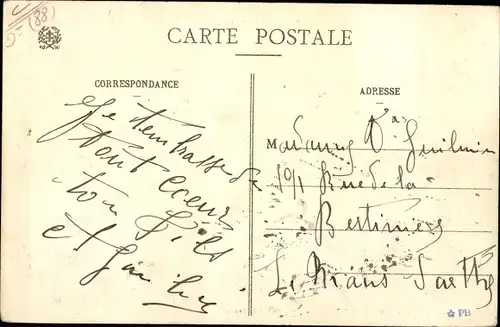 (88)
CARTE POSTALE
CORRESPONDANCE
Je t'embrasse de
tout coeur
ton fils
ADRESSE
Madame Vve Guilmin
Rue de la
Le Mans Sarthe
PB